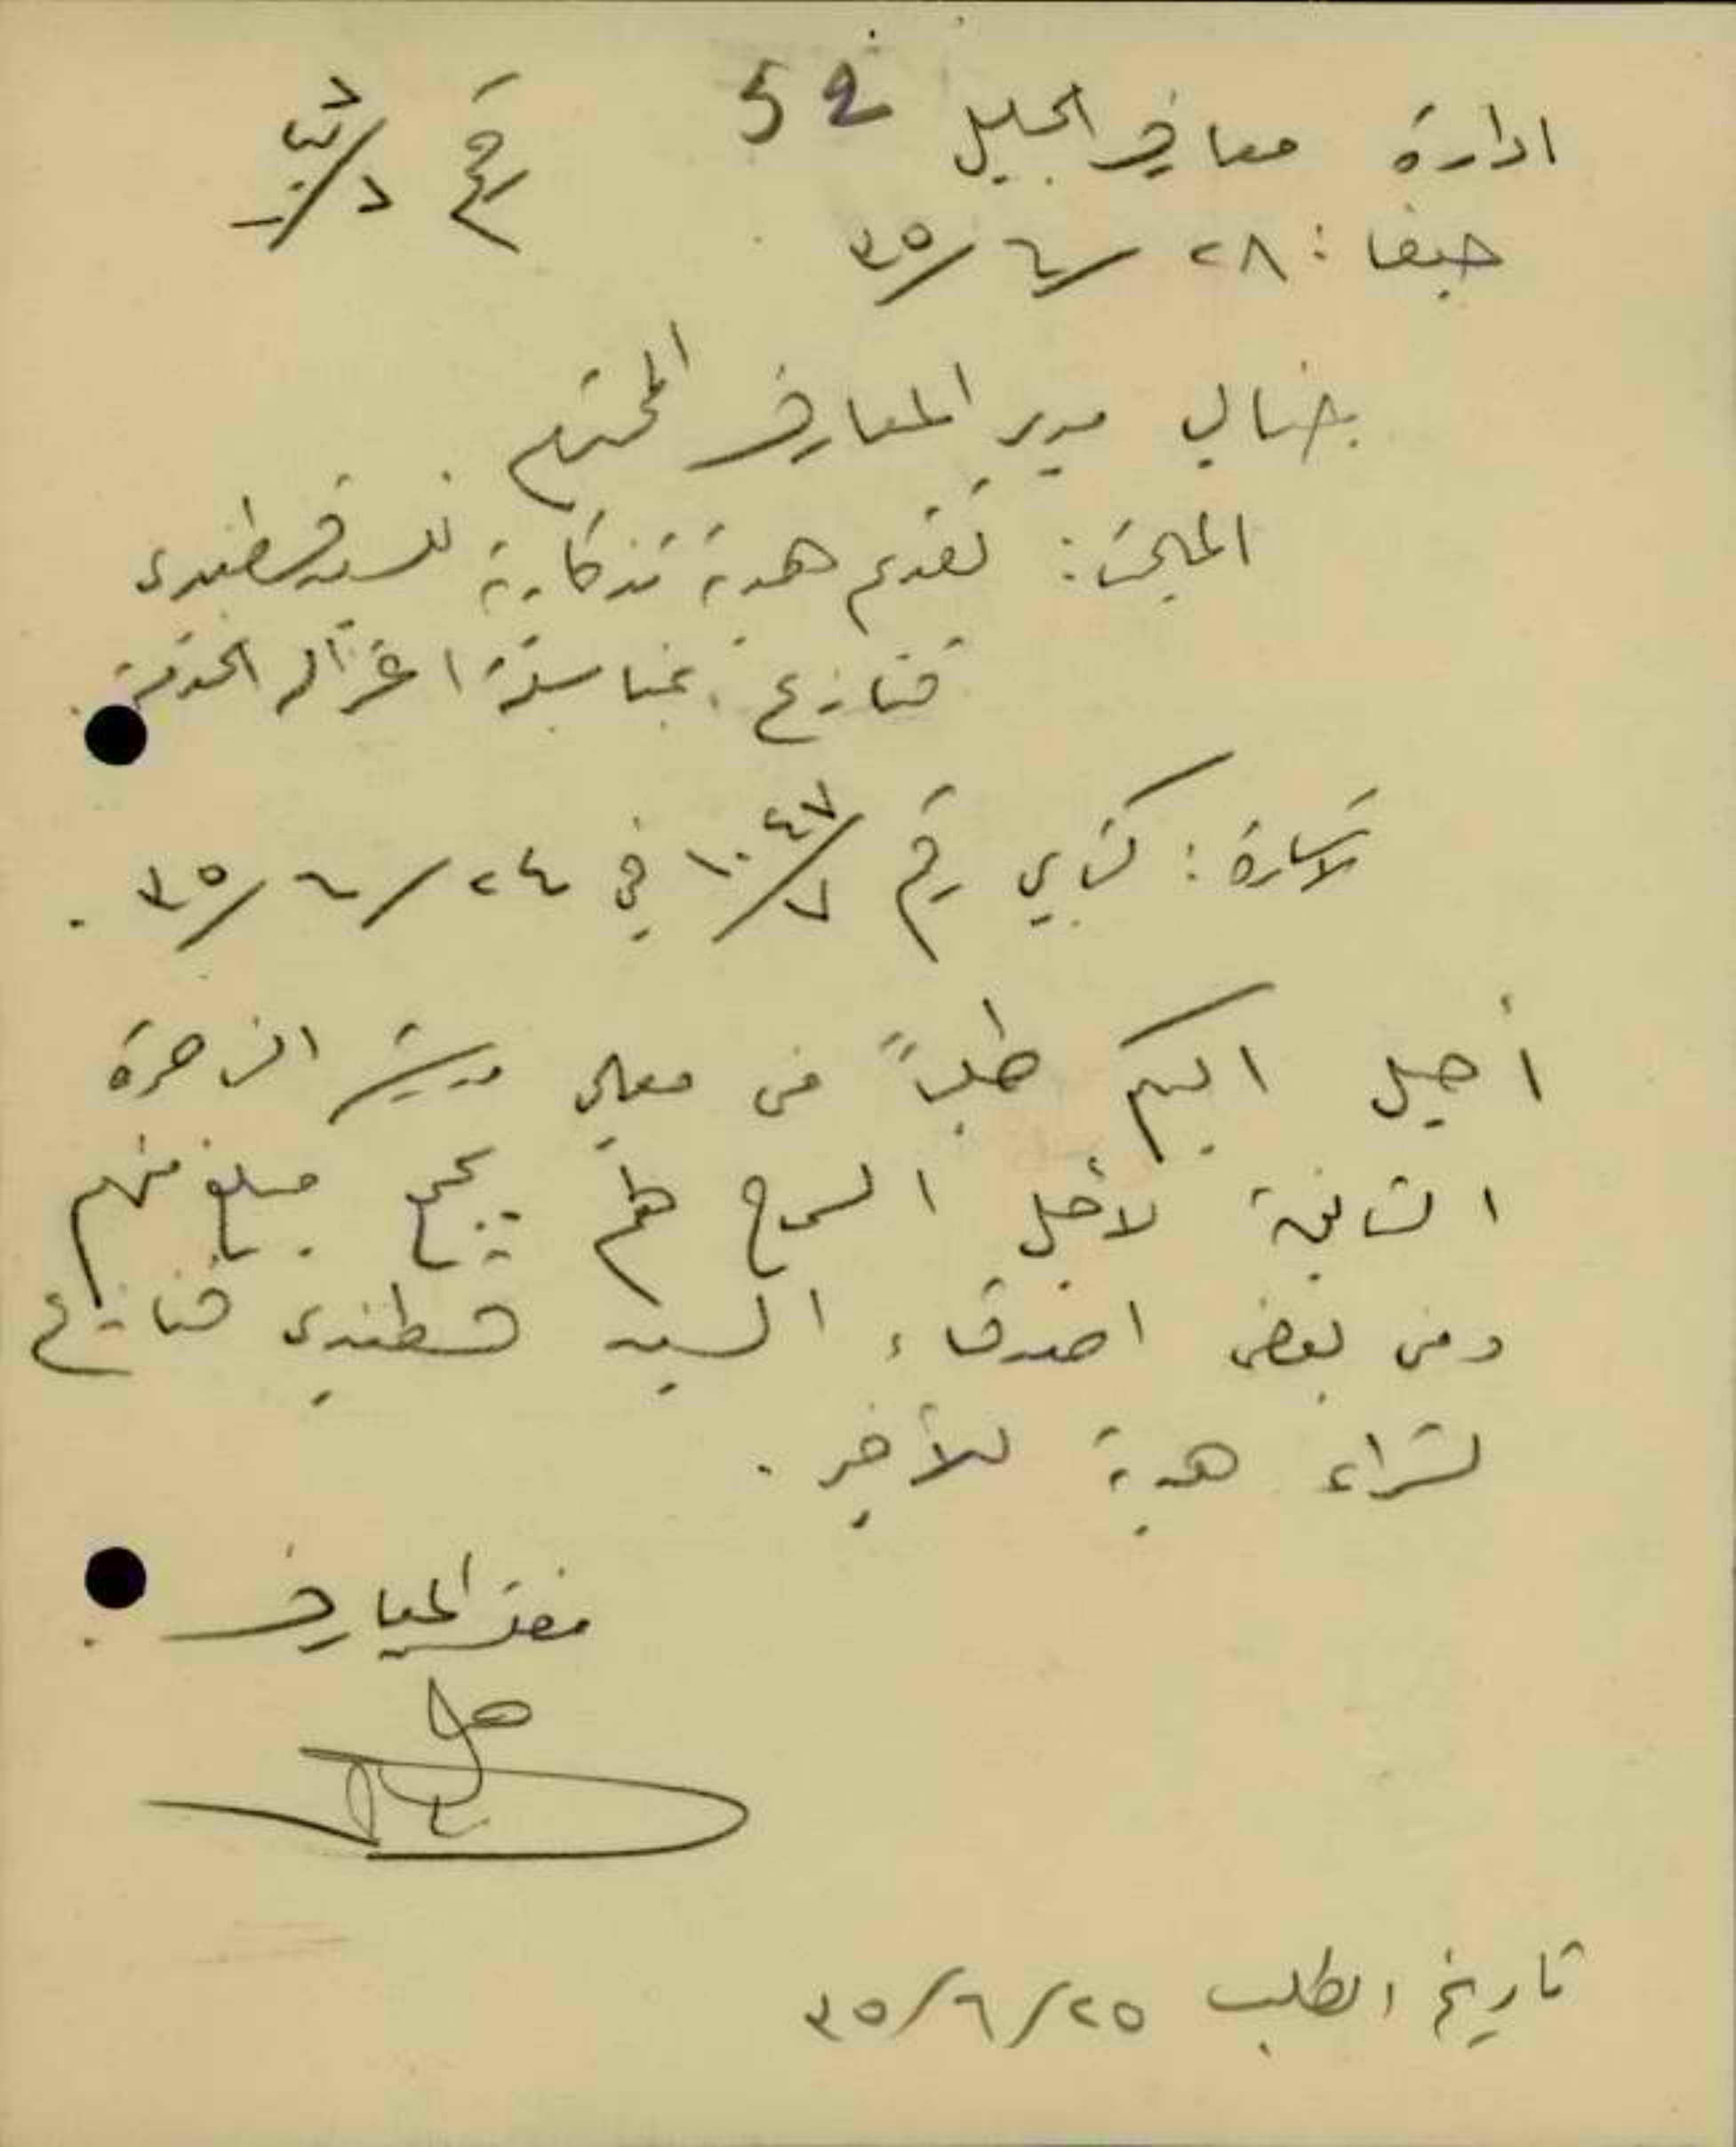 ادارة معارف الجليل 52 رقم
حيفا: ٢٨/٦/٣٥
جناب مدير المعارف المحترم
المبحث: تقديم هدية تذكارية للسيد قسطندي
قنازع بمناسبة اعتزاله الخدمة.
الاشارة: كتابي رقم ١٠٤٧/٧ في ٢٤/٦/٣٥.
أحيل اليكم طلباً من معلمي مدرسة الزهرة
الثانية لأجل السماح لهم بجمع مبلغ منهم
ومن بعض اصدقاء السيد قسطندي قنازع
لشراء هدية للأخير.
مفتش المعارف
تاريخ الطلب ٢٥/٦/٣٥